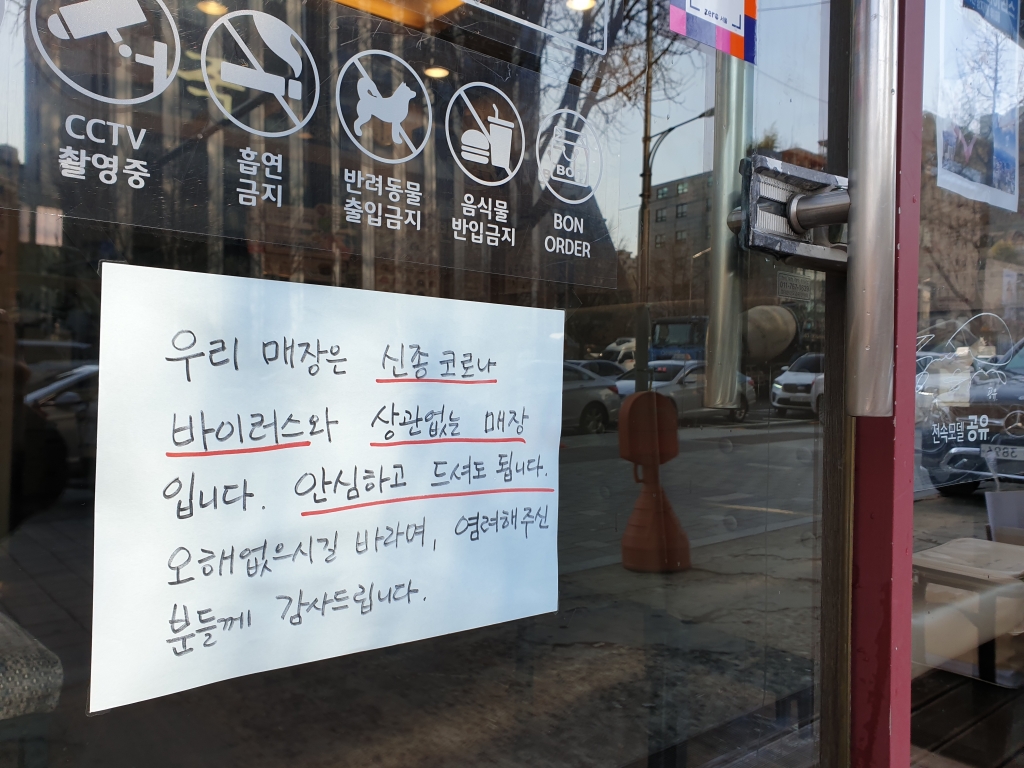 zero 서울
CCTV
촬영중
흡연
금지
반려동물
출입금지
음식물
반입금지
BON
BON
ORDER
우리 매장은 신종 코로나
바이러스와 상관없는 매장
입니다. 안심하고 드셔도 됩니다.
오해없으시길 바라며, 염려해주신
분들께 감사드립니다.
전속모델 공유